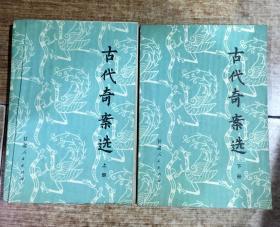 古代奇案选
上册
古代奇案选
下册